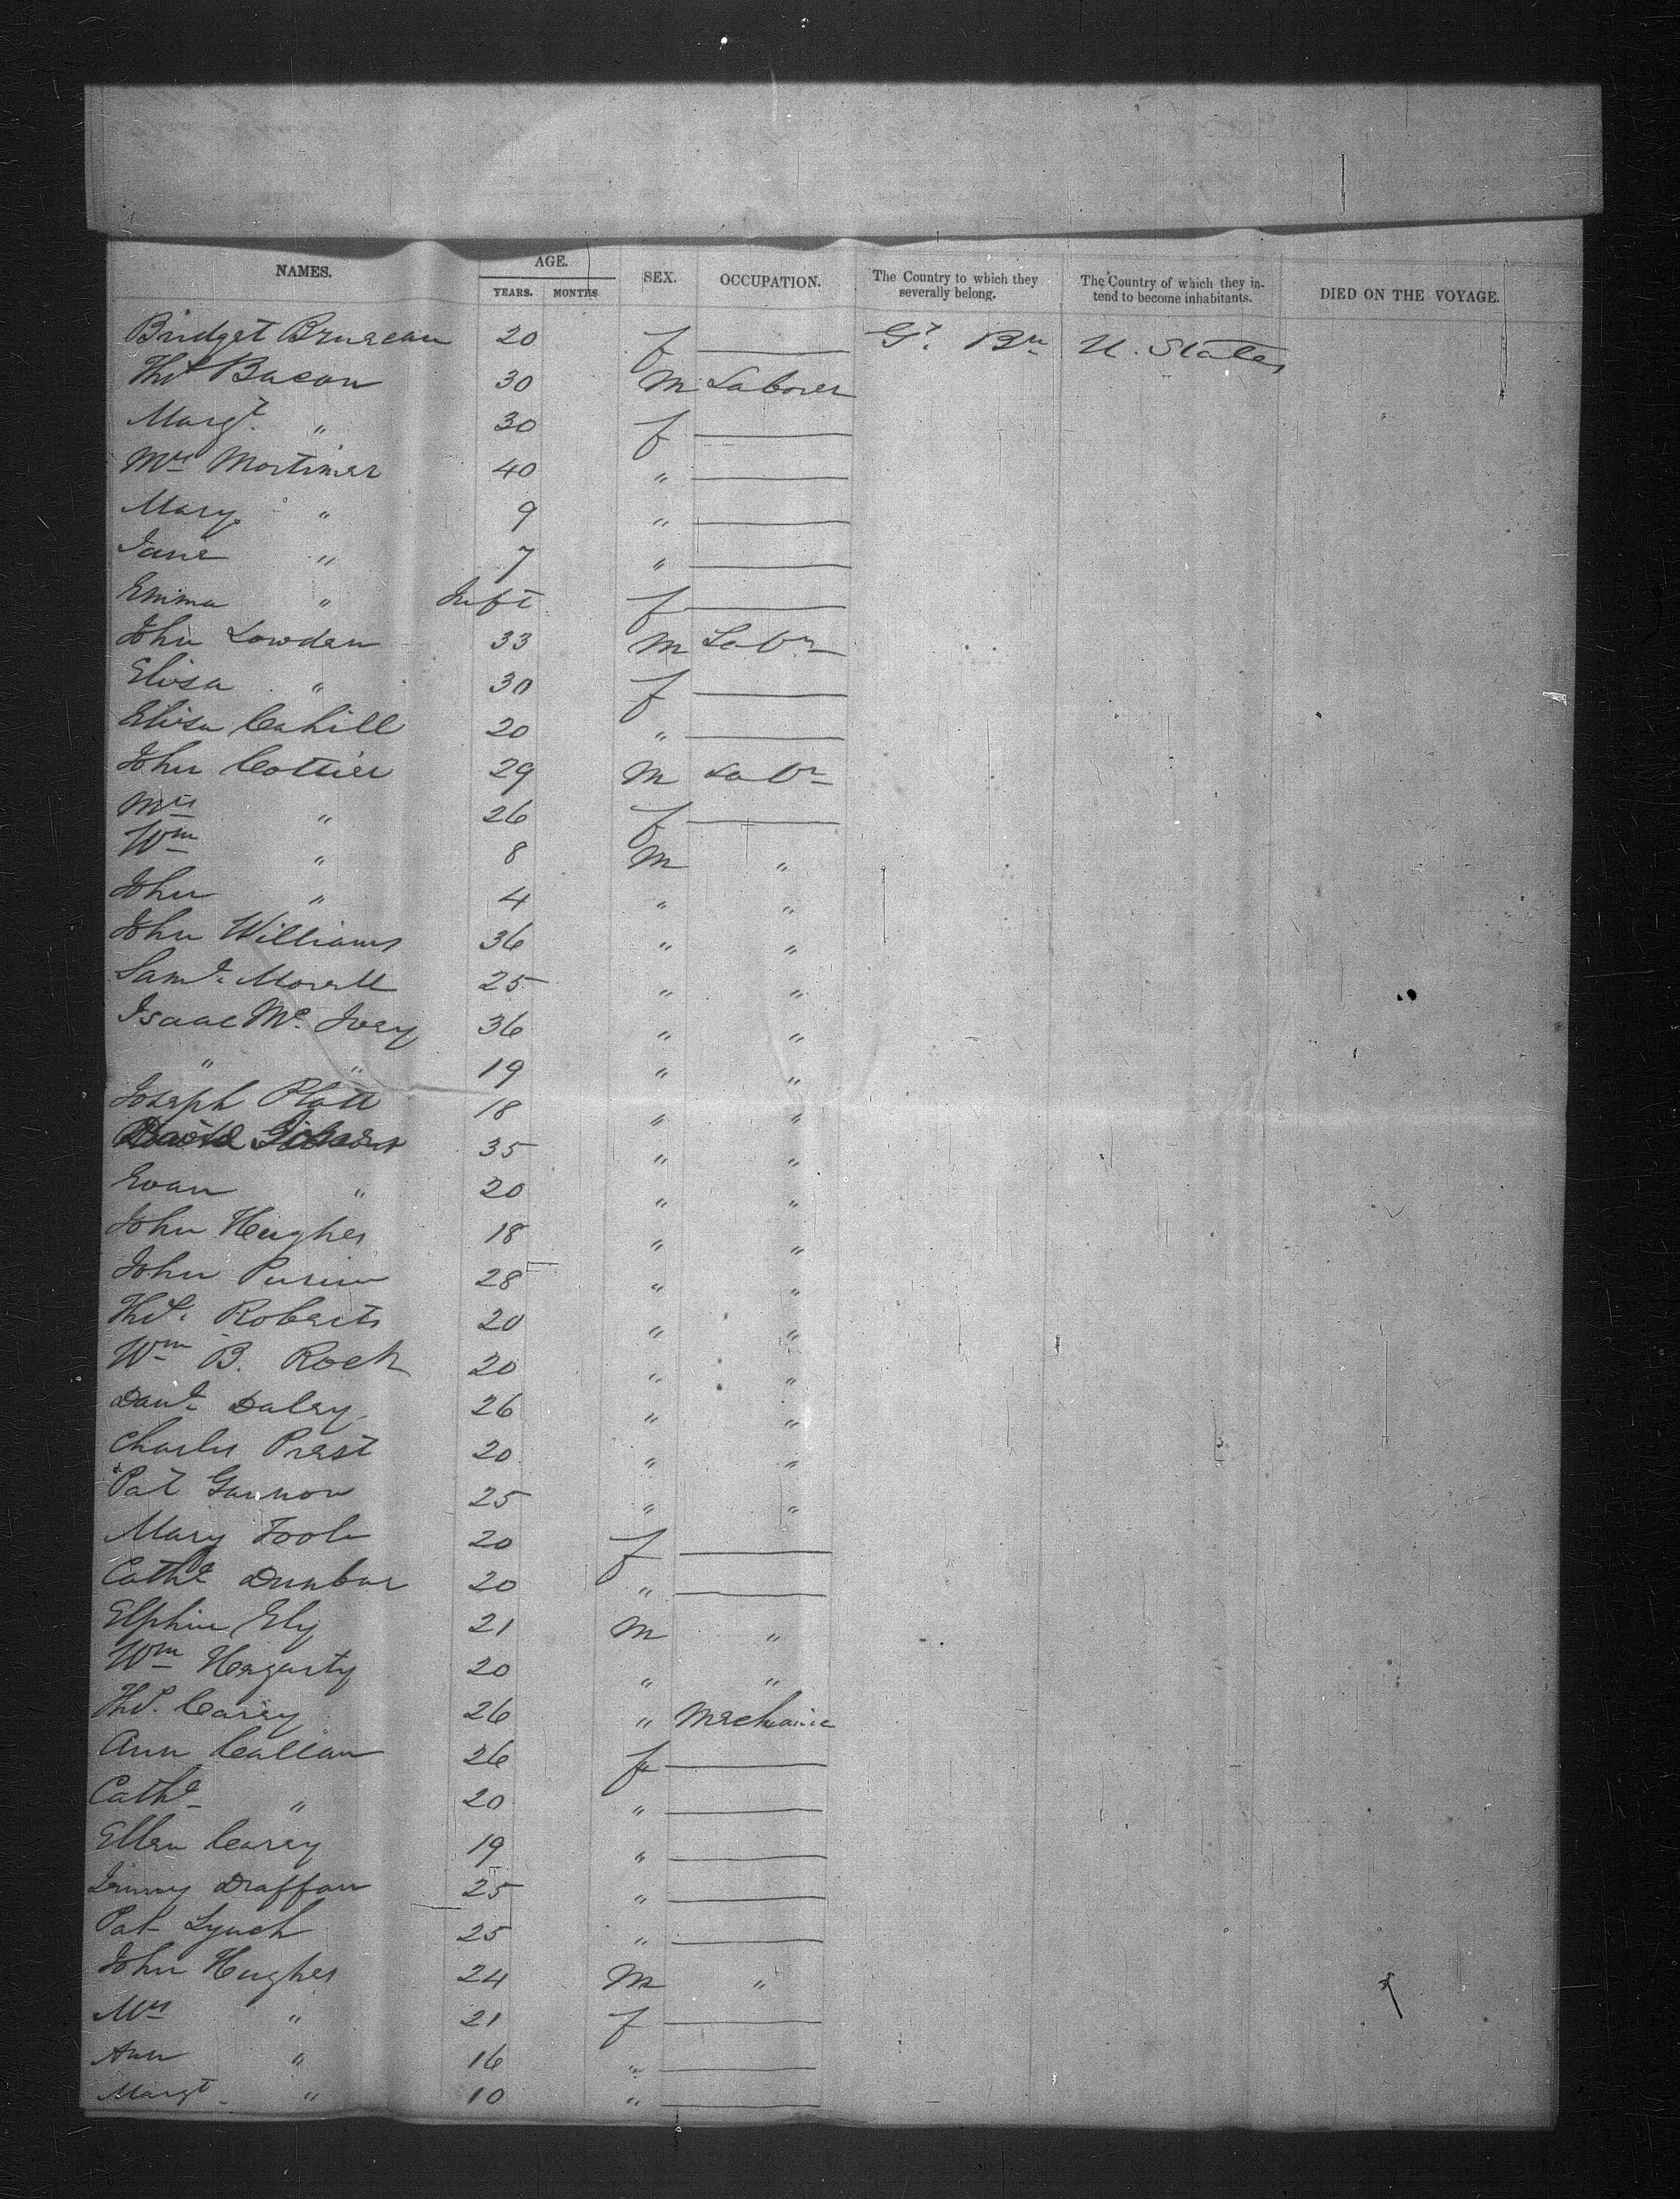 NAMES. AGE. SEX. OCCUPATION. The Country to which they severally belong. The Country of which they intend to become inhabitants. DIED ON THE VOYAGE.
YEARS. MONTHS
Bridget 20 f — Gt. Bn U. States
Thos Bacon 30 M Laborer
Margt. " 30 f —
Mrs Mortimer 40 " —
Mary " 9 " —
Jane " 7 " —
Emma " Inft f —
John Lowden 33 M Labr
Elisa " 30 f —
Elisa Cahill 20 " —
John Cottier 29 M Labr
Mrs " 26 f —
Wm " 8 M "
John " 4 " "
John Williams 36 " "
Saml. Morell 25 " "
Isaac Mc. Ivey 36 " "
" " 19 " "
Joseph Platt 18 " "
David 35 " "
Evan " 20 " "
John Hughes 18 " "
John 28 " "
Thos. Roberts 20 " "
Wm B. Rock 20 " "
Danl. Daley 26 " "
Charles Prest 20 " "
Pat Gannon 25 " "
Mary Toole 20 f —
Cathe Dunbar 20 " —
Elphin Ely 21 M "
Wm Hegarty 20 " "
Thos. Carey 26 " Mechanic
Ann Callan 26 f —
Cathe " 20 " —
Ellen Carey 19 " —
Draffan 25 " —
Pat Lynch 25 " —
John Hughes 24 M "
Mrs " 21 f —
Ann " 16 " —
Margt. " 10 " —